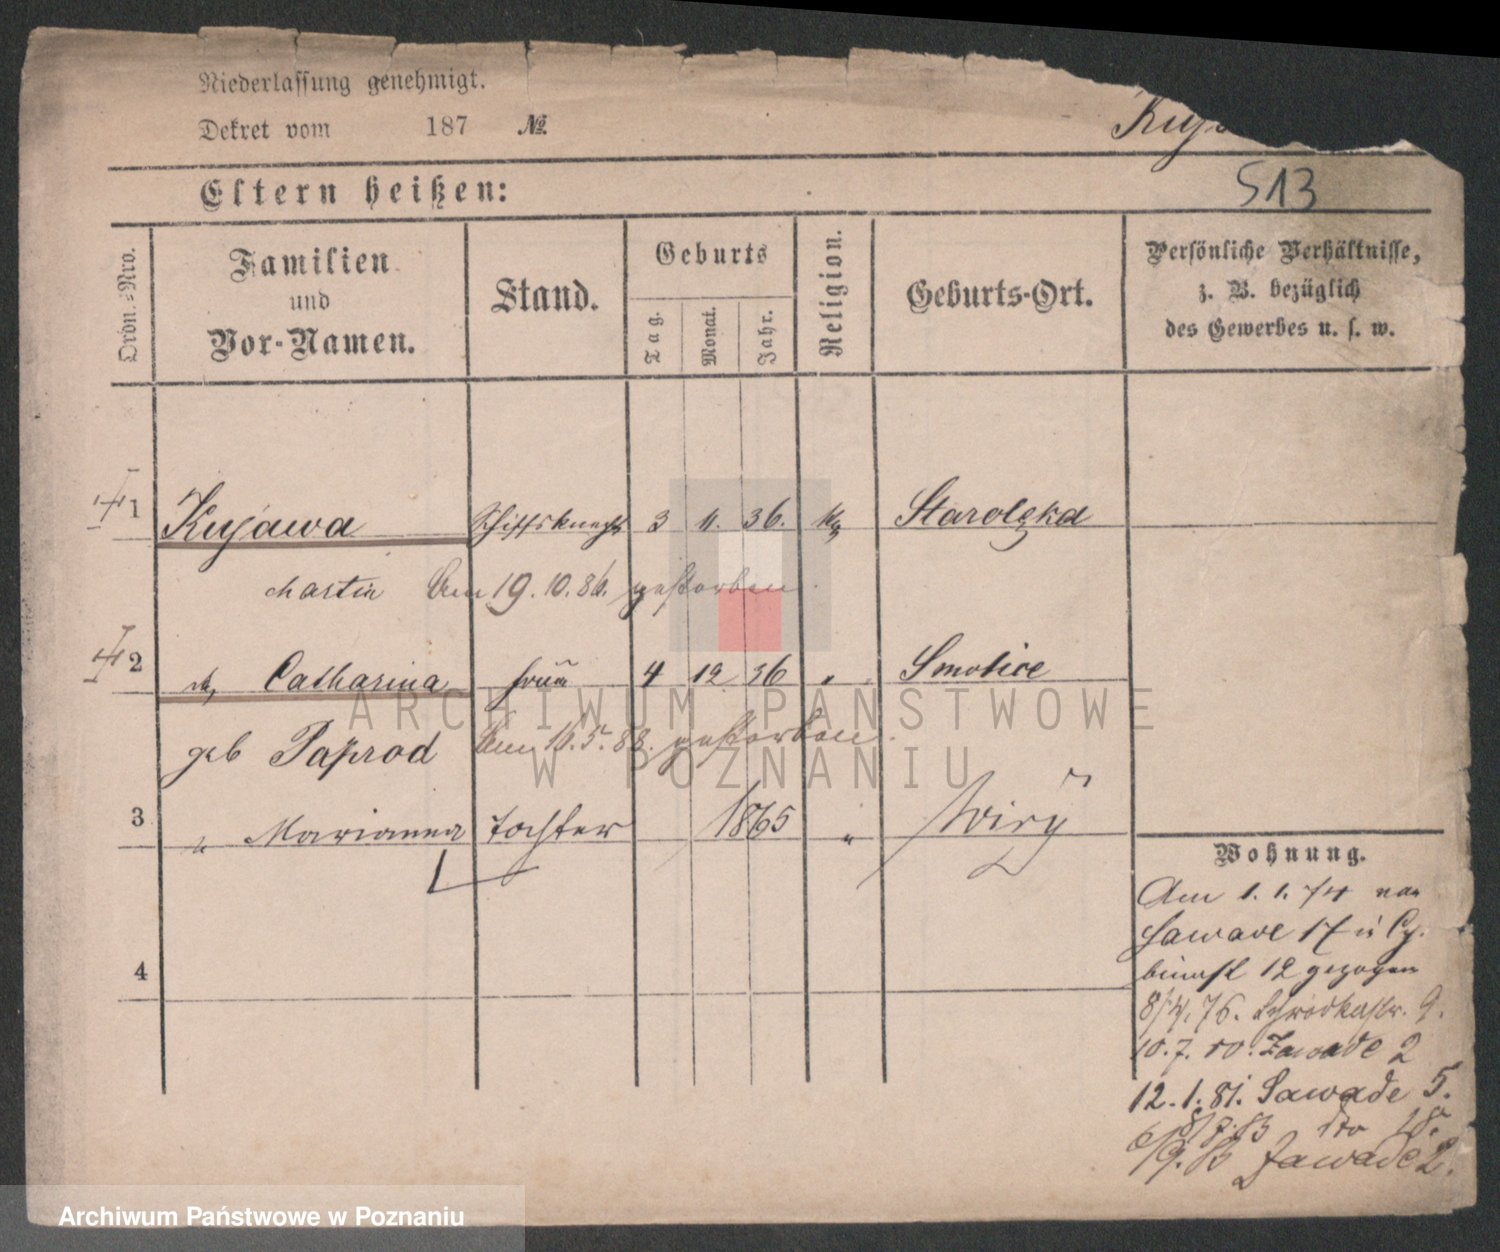 Niederlassung genehmigt.
Dekret vom 187 №
513
Eltern heißen:
Ordn.-Nro.
Familien und Vor-Namen.
Stand.
Geburts
Tag.
Monat.
Jahr.
Religion.
Geburts-Ort.
Persönliche Verhältnisse,
z. B. bezüglich
des Gewerbes u. s. w.
1 Kujawa Schiffsknecht 3 11. 36. Starolęka
Martin Am 19. 10. 86. gestorben.
2 Catharina Frau 4 12 36 " Smolice
geb Paprod Am 16. 5. 88. gestorben.
3 " Marianna Tochter 1865 " Wiry
4
Wohnung.
Am 1. 1. 74 von
Zawade 17 12 gezogen
76. Schrodkastr. 9.
10. 7. Zawade 2
12. 1. 81. Sawade 5.
Zawade 2.
ARCHIWUM PAŃSTWOWE
W POZNANIU
Archiwum Państwowe w Poznaniu